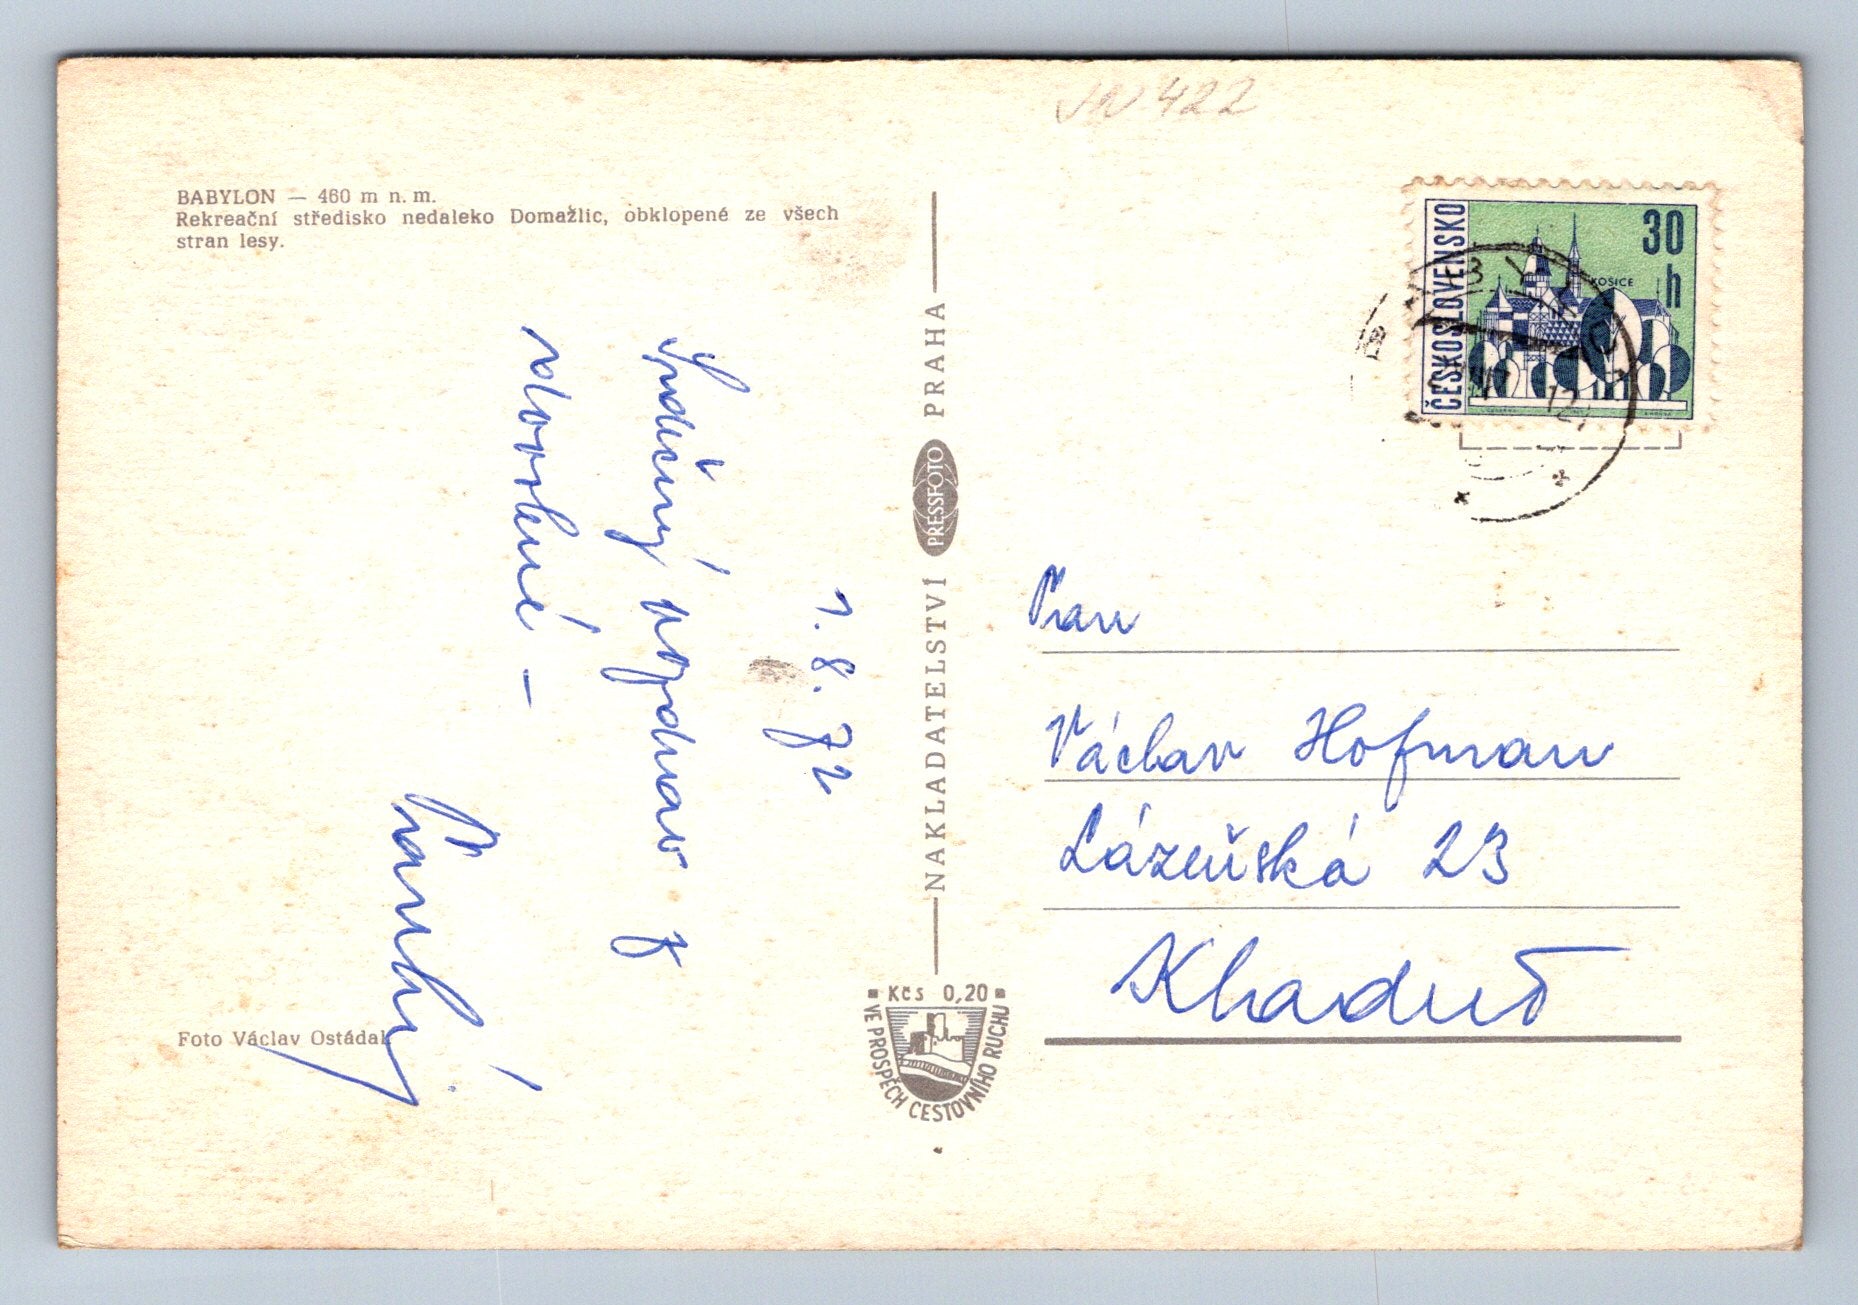 VN 422
BABYLON — 460 m n. m.
Rekreační středisko nedaleko Domažlic, obklopené ze všech
stran lesy.
ČESKOSLOVENSKO
30
h
KOŠICE
1. 8. 72
Srdečný pozdrav z
dovolené –
NAKLADATELSTVÍ PRESSFOTO PRAHA
Pan
Václav Hofman
Lázeňská 23
Kladno
Kčs 0,20
VE PROSPĚCH CESTOVNÍHO RUCHU
Foto Václav Ostádal